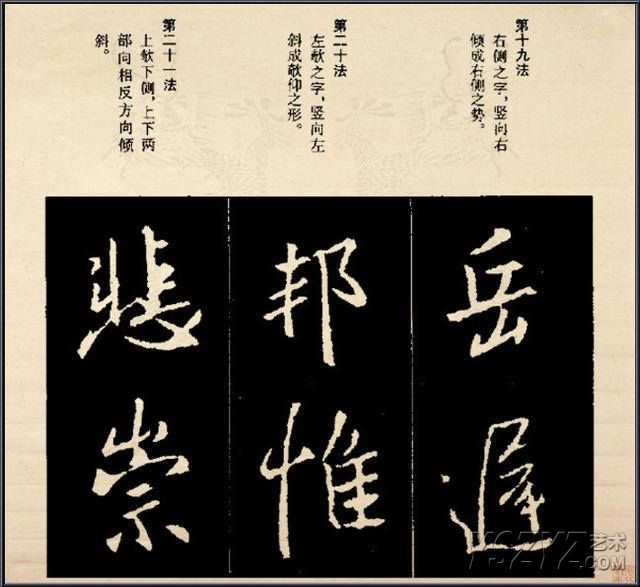 第十九法
右侧之字，竖向右
倾成右侧之势。
岳
遲
第二十法
左欹之字，竖向左
斜成欹仰之形。
邦
惟
第二十一法
上欹下侧，上下两
部向相反方向倾
斜。
悲
崇
YSZYZ艺术
.COM